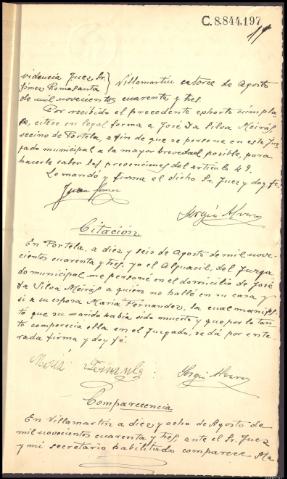 C.8.844.197
videncia Juez Sr. Villamartín catorce de Agosto
Gomez Romasanta
de mil novecientos cuarenta y tres.
Por recibido el precedente exhorto cumpla
se, citese en legal forma a José Da Silva Meirás
vecino de Portela a fin de que se persone en este Juz
gado municipal a la mayor brevedad posible, para
hacerle saber las prevenciones del artículo 49.
Lo mandó y firma el dicho Sr. Juez y doy fé.
Juan Gomez
Sergio Alvarez
Citación
En Portela, a diez y seis de Agosto de mil nove
cientos cuarenta y tres, yo el Alguacil del Juzga
do municipal me personé en el domicilio de José
da Silva Meirás a quien no hallé en su casa y
si a su esposa María Fernández, la cual manifes
tó que su marido había sido muerto y que por lo tan
to comparecía ella en el Juzgado, se dá por ente
rada firma y doy fé.
María Fernandez Sergio Alvarez
Comparecencia
En Villamartín a diez y ocho de Agosto de
mil novecientos cuarenta y tres, ante el Sr. Juez
y mi secretario habilitado comparece Ma